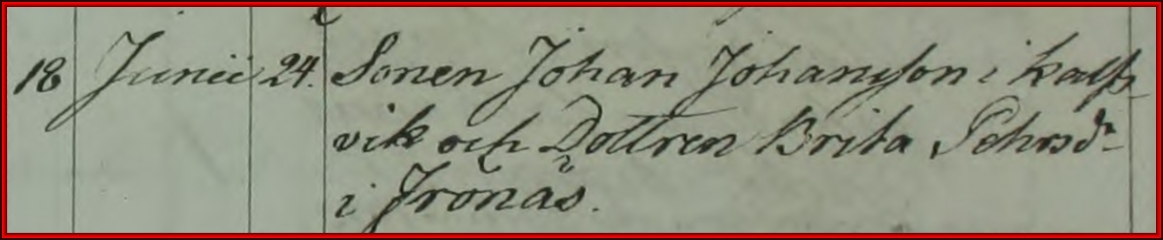 18 Junii 24. Sonen Johan Johansson i Kalfs
vik och Dottren Brita Pehrsdr
i Jronäs.